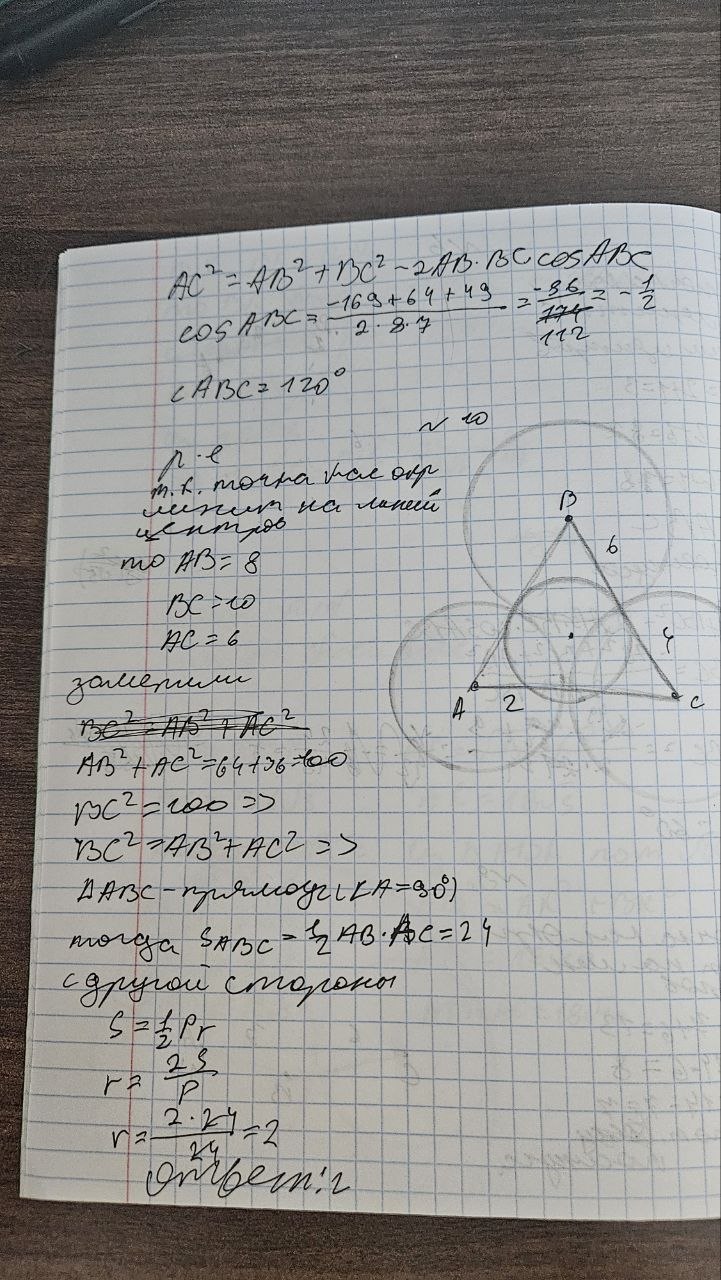 AC² = AB² + BC² - 2AB·BC cos ABC
cos ABC = (-169+64+49)/(2·8·7) = -56/112 = -1/2
∠ABC = 120°
№ 10
т.к. точка кас окр
лежит на линии
центров
то AB = 8
BC = 10
AC = 6
заметим
BC² = AB² + AC²
AB² + AC² = 64+36=100
BC² = 100 =>
BC² = AB² + AC² =>
ΔABC - прямоуг (∠A = 90°)
тогда S_ABC = 1/2 AB·AC = 24
с другой стороны
S = 1/2 Pr
r = 2S/P
r = 2·24/24 = 2
Ответ: 2
B
6
4
A
2
C